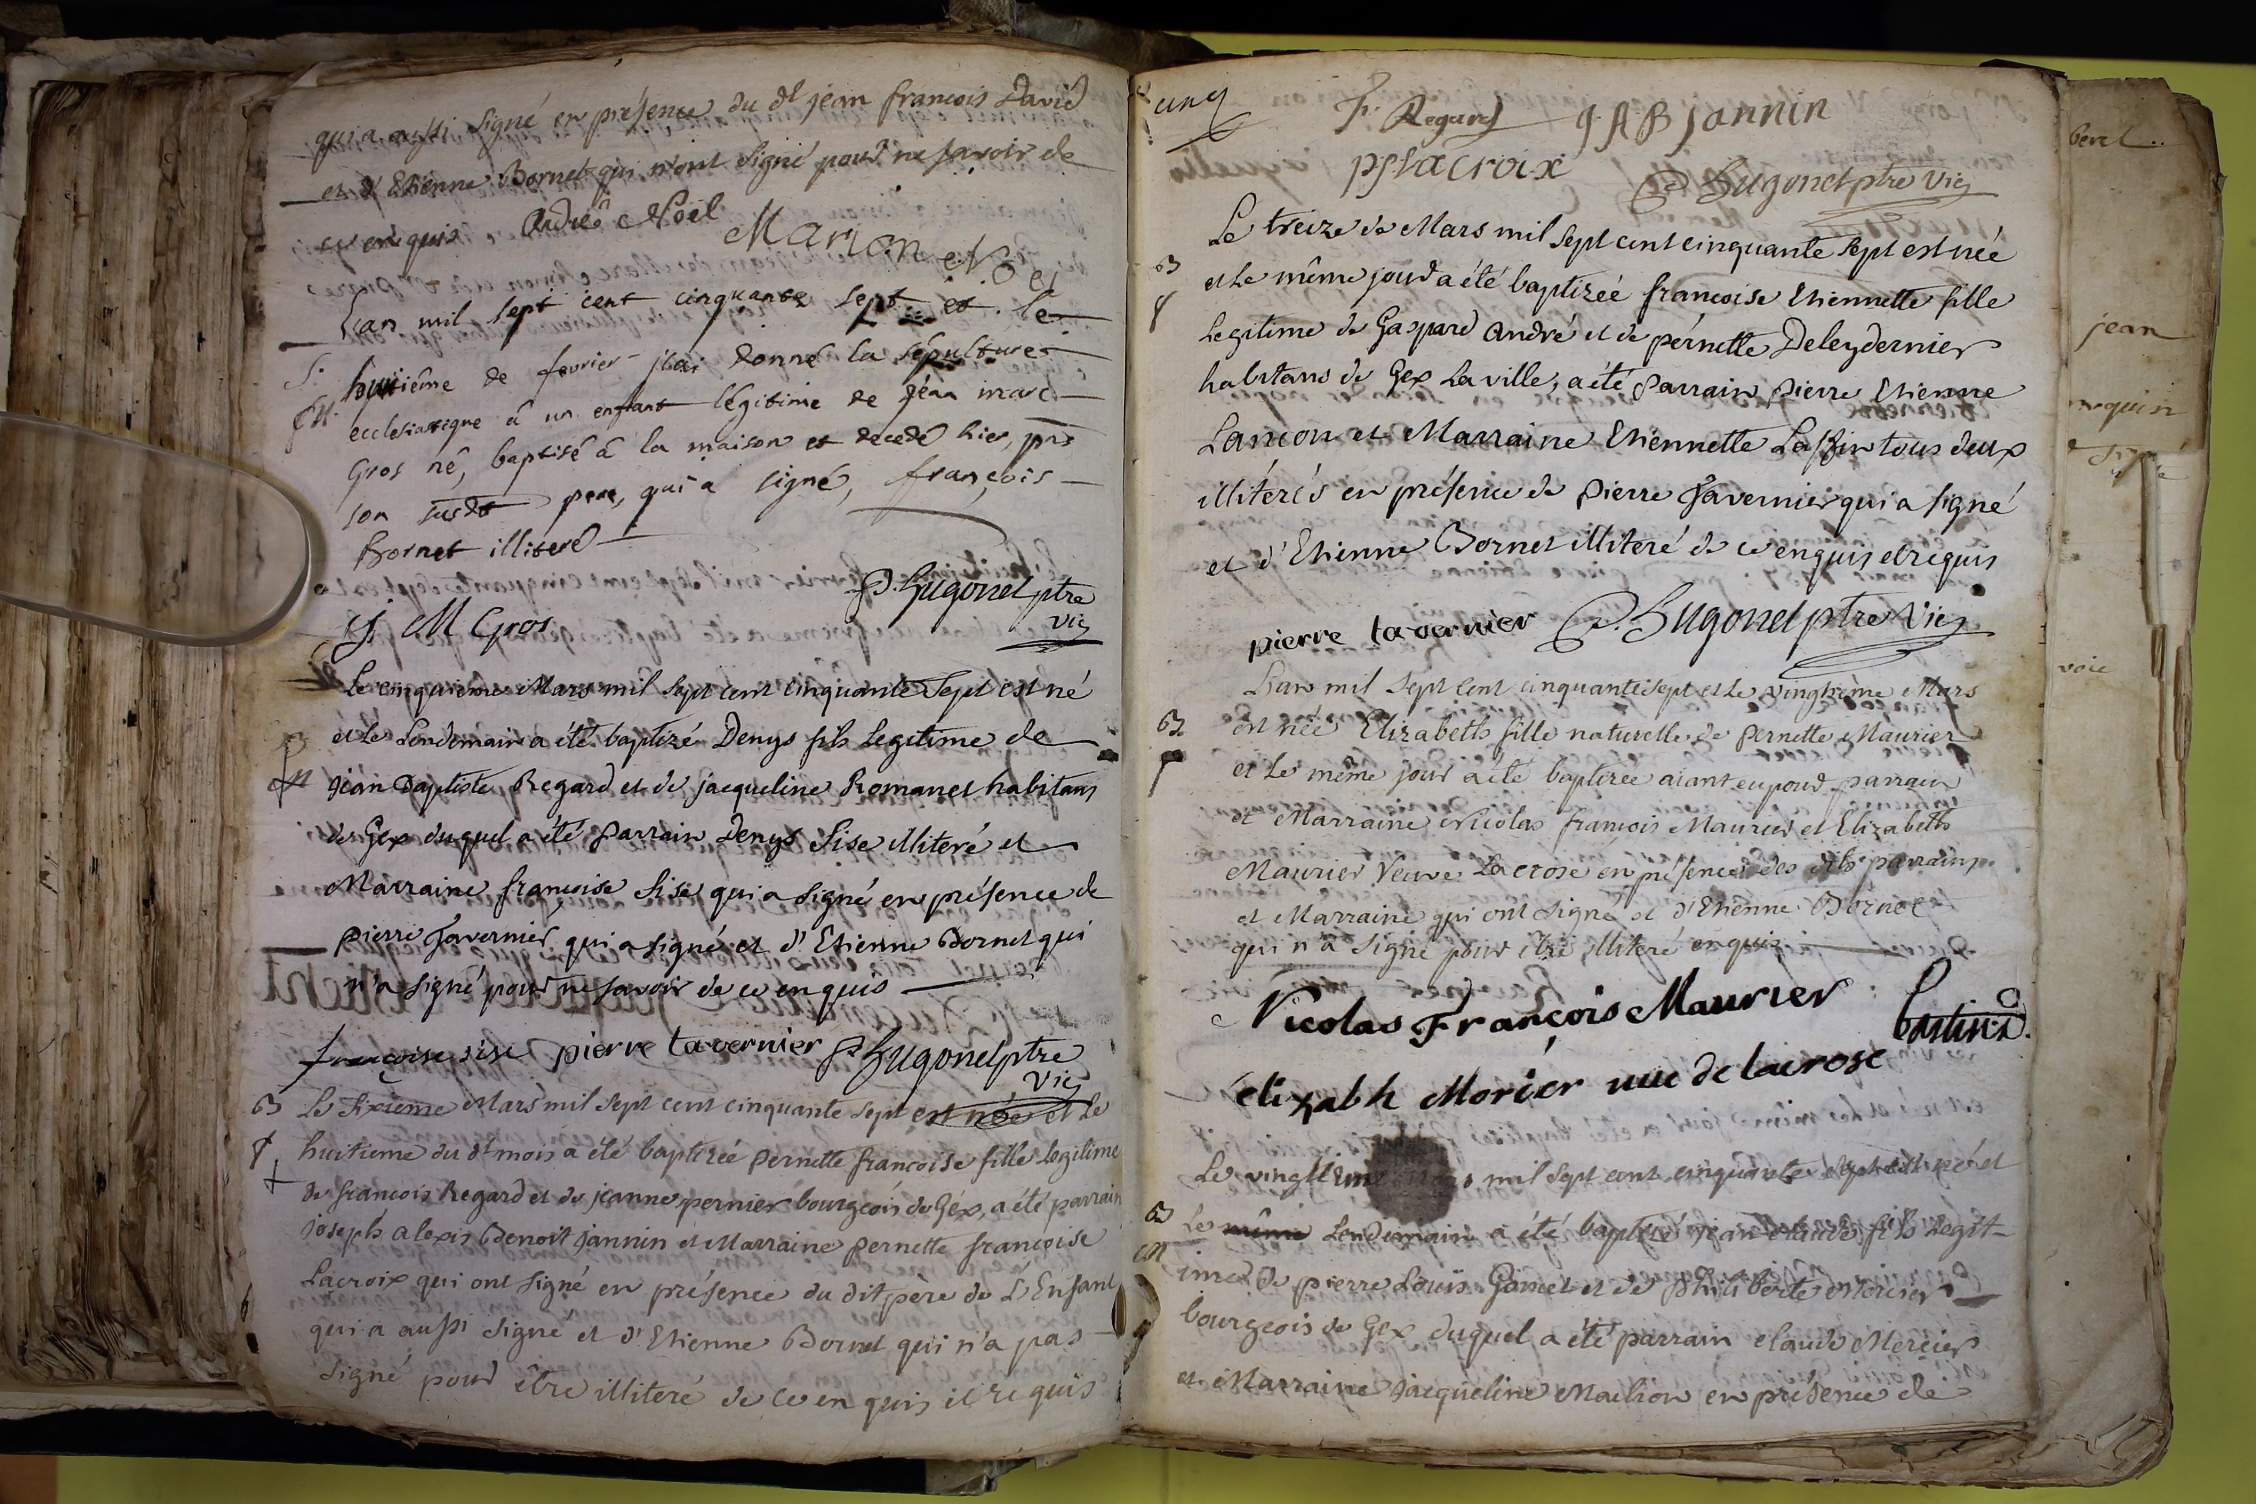 qui a aussi signé en présence du dt jean francois David
et d'Etienne Bornet qui n'ont signé pour ne savoir de
ce enquis Noel Marion Noel
Lan mil sept cent cinquante sept et le
S. huitième de fevrier j'ai donné la sépulture
ecclesiastique à un enfant légitime de jean marc
Gros né, baptisé à la maison et decedé hier, pns
son susdt pere, qui a signé, françois
Bornet illiteré
P. Hugonet ptre
vic
j. M Gros
Le cinquieme Mars mil sept cent cinquante sept est né
B et le Lendemain a été baptizé Denys fils legitime de
m jean Baptiste Regard et de jacqueline Romanet habitans
de Gex duquel a été parrain Denys Sise illiteré et
Marraine francoise Sise qui a signé en présence de
pierre Tavernier qui a signé et d'Etienne Bornet qui
n'a signé pour ne savoir de ce enquis
françoise sise pierre tavernier P. Hugonet ptre
vic
B Le sixieme Mars mil sept cent cinquante sept est née et le
f huitieme du dt mois a été baptizée pernette francoise fille legitime
+ de francois Regard et de jeanne pernier bourgeois de Gex, a été parrain
joseph alexis Benoit jannin et Marraine pernette francoise
Lacroix qui ont signé en présence du dit père de L'Enfant
qui a aussi signé et d'Etienne Bornet qui n'a pas
signé pour être illiteré de ce enquis et requis
cinq
F. Regard J. A B jannin
p f lacroix P. Hugonet ptre Vic
Le treize de Mars mil sept cent cinquante sept est née
B et le même jour a été baptizéé francoise Etiennette fille
f Legitime de Gaspard André et de pérnette Deleydernier
habitans de Gex la ville, a été parrain pierre Etienne
Lancon et Marraine Etiennette Laffin tous deux
illiterés en présence de pierre Tavernier qui a signé
et d'Etienne Bornet illiteré de ce enquis et requis
pierre tavernier P. Hugonet ptre Vic
L'an mil sept cent cinquante sept et le vingtième Mars
B est née Elizabeth fille naturelle de pernette Maurier
f et le même jour a été baptizée aiant eu pour parrain
et Marraine Nicolas francois Maurier et Elizabeth
Maurier Veuve Lacrose en présence des dits parrain
et Marraine qui ont signé et d'Etienne Bornet
qui n'a signé pour être illiteré enquis
Nicolas François Maurier
elizabh Morier uue de lacrose
Le vingtieme mars mil sept cent cinquante sept est né et
B Le même Lendemain a été baptizé jean claude fils Legit-
m ime de pierre Louis Gamet et de philiberte Mercier
bourgeois de Gex duquel a été parrain claude Mercier
et Marraine jacqueline Machon en présence de
jean
voie